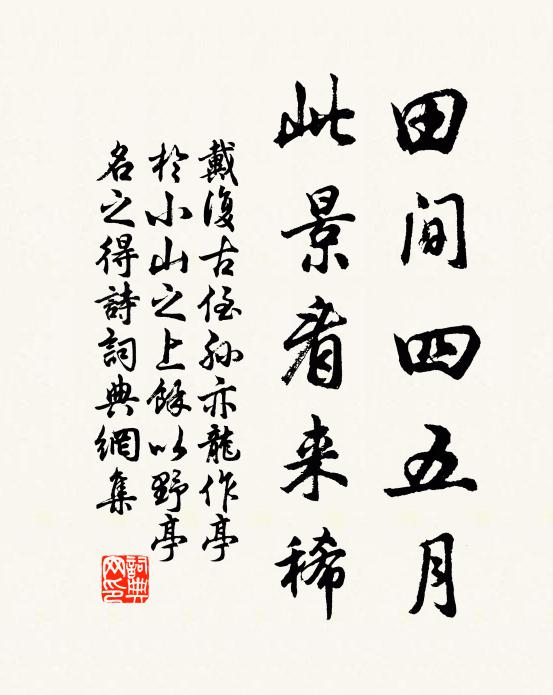 田間四五月
此景看来稀
戴復古侄孫亦龍作亭
於小山之上餘以野亭
名之得詩詞典網集
詞典
网印